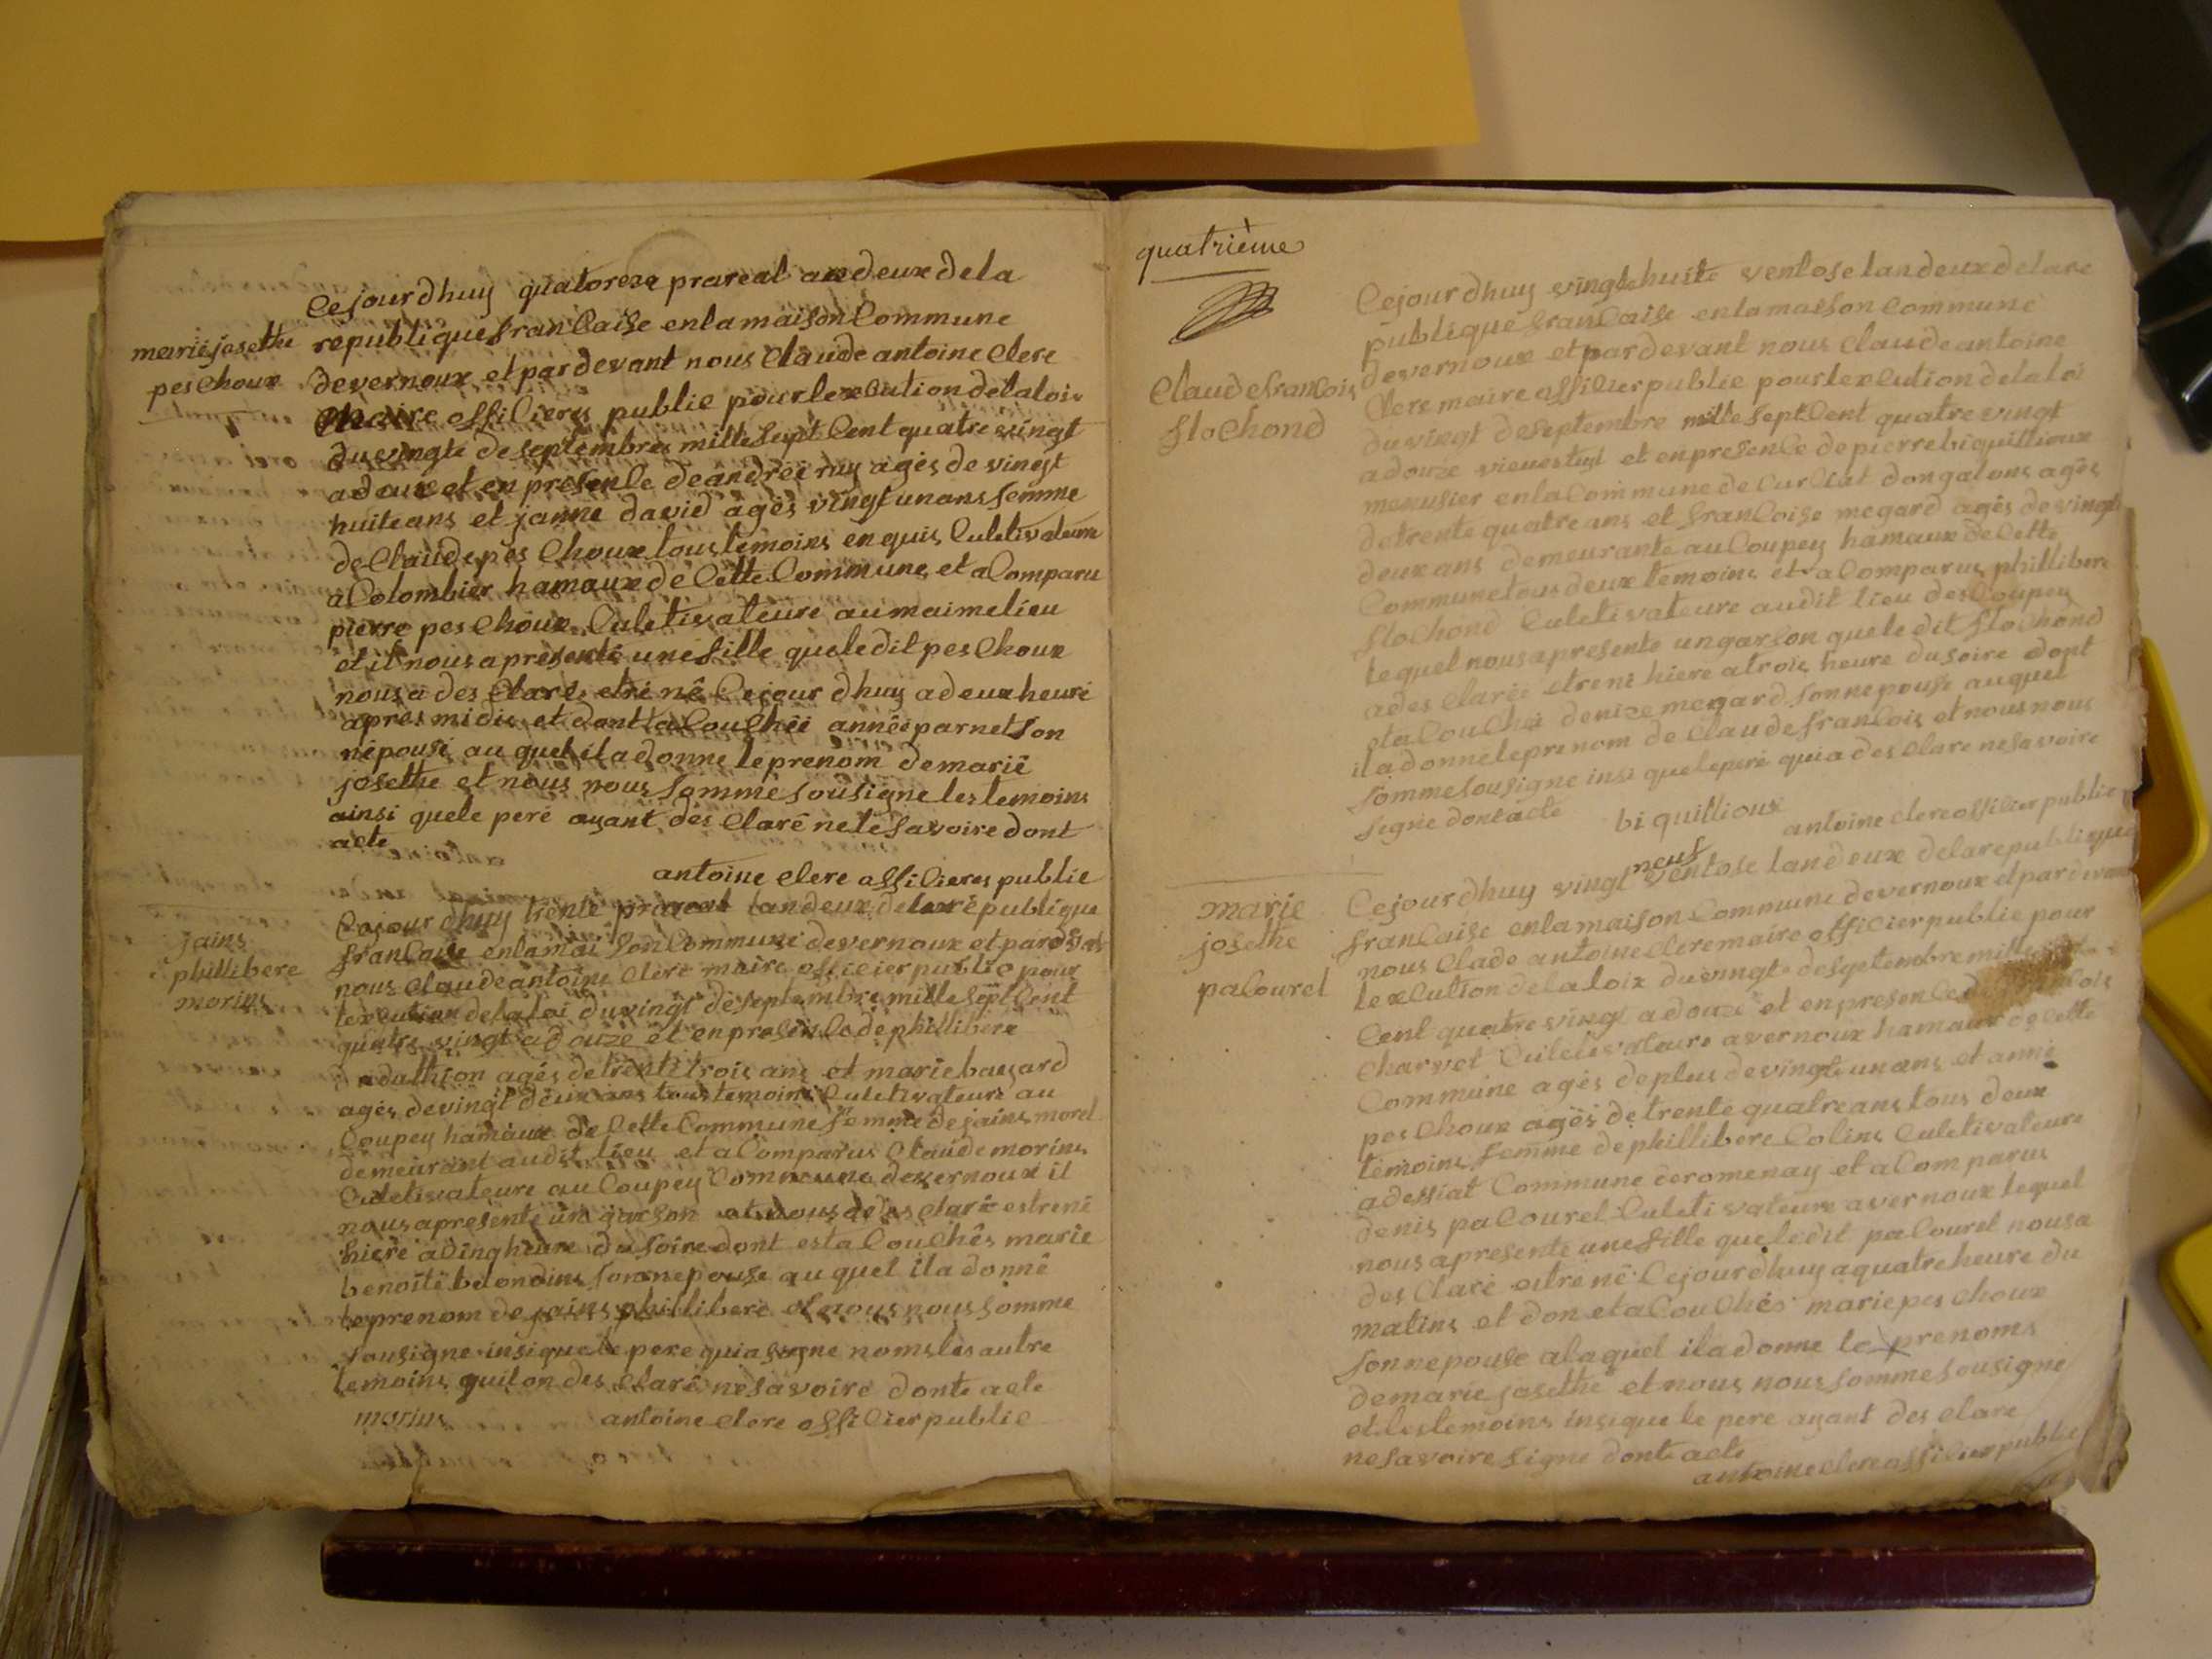 marie josethe
pes choux
Cejourdhuy quatoreze prareal an deux dela
republique francaise enlamaison Commune
devernoux et pardevant nous Claude antoine Clere
maire officieres publie pour lexcution delaloi
du vingte de septembres mille sept Cent quatre vingt
adouze et en presence de andrée ruy agés de vinegt
huite ans et janne david agés vingt un ans femme
de Claude pes Choux tous temoins en quis Culetivateure
a Colombier hamaux de Cette Commune et a Comparu
pierre pes choux Culetivateure au maime lieu
et il nous a presenté une fille quele dit pes choux
nous a des Claré etre né Cejour dhuy a deux heure
apres midis et dont a Couchée année parnet son
népouse au quel il a donne le prenom de marie
josethe et nous nous somme sousigne les temoins
ainsi quele peré ayant des Claré nele savoire dont
acte
antoine clere officieres publie
jains
phillibere
morins
Cejour dhuy trente prareal lan deux dela republique
francaise enlamaison Commune devernoux et pardevant
nous Claude antoine Clere maire officier publie pour
lexcution delaloi du vingt deseptembre mille sept Cent
quatre vingt adouze et en presence de phillibere
agés de trente trois ans et marie bauzard
agés de vingt deux ans tous temoins Culetivateure au
Coupey hamaux de Cette Commune femme de jains morel
demeurant audit lieu et a Comparus Claude morins
Culetivateure au Coupey Commune devernoux il
nous apresente un garson et nous a des claré estrené
hiere a Cinq heure du soire dont est a Couchés marie
benoite sonnepouse au quel il a donné
le prenom de jains phillibere et nous nous somme
sousigne insi que le pere qui a signe noms les autre
temoins qui lon des claré ne savoire donte acte
morins antoine clere officier publie
quatrième
Claude francois
flochond
Cejour dhuy vingt huite ventose lan deux delare
publique francaise en la maison Commune
devernoux et par devant nous Claude antoine
Clere maire officier publie pour lexcution delaloi
du vingt deseptembre mille sept Cent quatre vingt
adouze vieuestyl et en presence de pierre biquillioux
menusier en la Commune de Curciat dongalons agés
de trente quatre ans et francoise megard agés de vingt
deux ans demeurante au Coupey hamaux de Cette
Commune tous deux temoins et a Comparus phillibere
flochond Culetivateure audit lieu des Coupey
lequel nous apresente un garson quele dit flochond
a des clarée etrene hiere a trois heure du soire dont
eta Couchée denize megard sonnepouse au quel
il a donné le prenom de Claude francois et nous nous
somme sousigne insi que le peré qui a des clare ne savoire
signe dont acte biquillioux
antoine clere officier publie
marie
josethe
paCouret
Cejour dhuy vingt neuf ventose lan deux delarepublique
francaise en la maison Commune devernoux et pardevant
nous Clade antoine clere maire officier publie pour
lexcution delaloix du vingte desgetembre mille
Cent quatre ving adouze et en presence de
Charvet Culetivateure a vernoux hamaux de Cette
Commune agés de plus de vingte un ans et anne
pes choux agés de trente quatre ans tous deux
temoins femme de phillibere Colins Culetivateure
adessiat Commune deromenay et a Comparus
denis paCouret Culetivateure a vernoux lequel
nous apresente une fille que le dit paCouret nousa
des Claré etre né Cejourdhuy a quatre heure du
matins et don eta Couchés marie pes choux
sonnepouse alaquel il a donne le prenoms
demarie josethe et nous nous somme sousigne
et les temoins insi que le pere ayant des clare
ne savoire signe donte acte
antoine clere officier publie